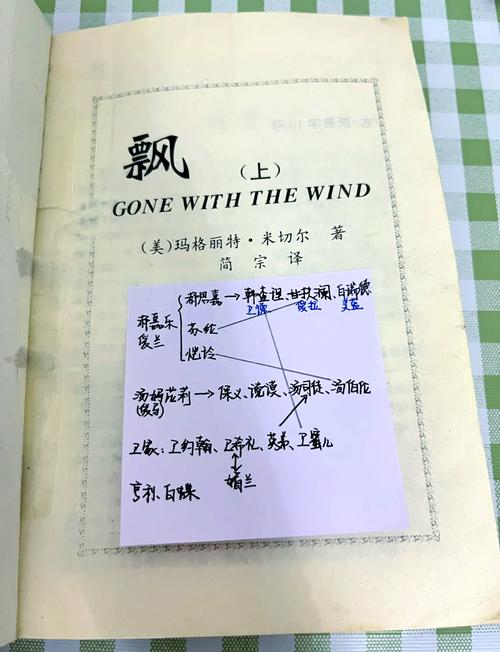 飘
（上）
GONE WITH THE WIND
（美）玛格丽特·米切尔 著
简 宗 译
郝思嘉→韩查理、甘扶澜、白瑞德
卫德
爱拉
美蓝
郝嘉乐
爱兰
苏纶
恺玲
汤妈茈莉→保义、谎谟、汤司徒、汤伯伦
卫家：卫约翰、卫希礼、英弟、卫蜜儿
媚兰
亨利、白蝶